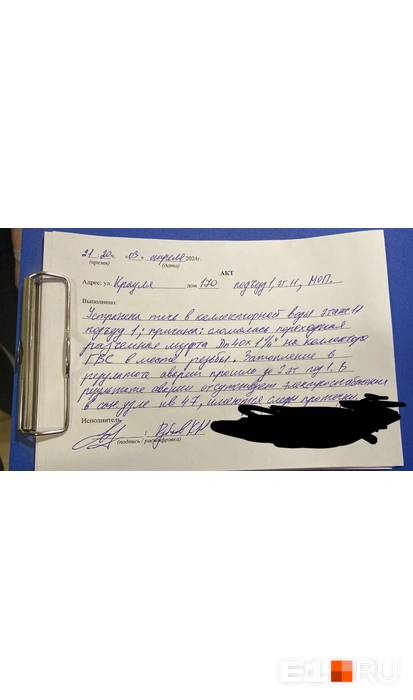 21 20 ч. «03» апреля 2024г.
(время) (дата)
АКТ
Адрес: ул. Крауля дом 170 подъезд 1, эт 11, МОП.
Выполнено:
Устранена течь в коллекторной воды этаж 11
подъезд 1, причина: сломалась переходная
разъемная муфта Dn40x1¼" на коллекторе
ГВС в месте резьбы. Затопление в
результате аварии прошло до 2 эт под 1. В
результате аварии отсутствует электроснабжение
в сан узле кв 47, имеются следы протечки.
Исполнитель
(подпись / расшифровка)
E1.RU